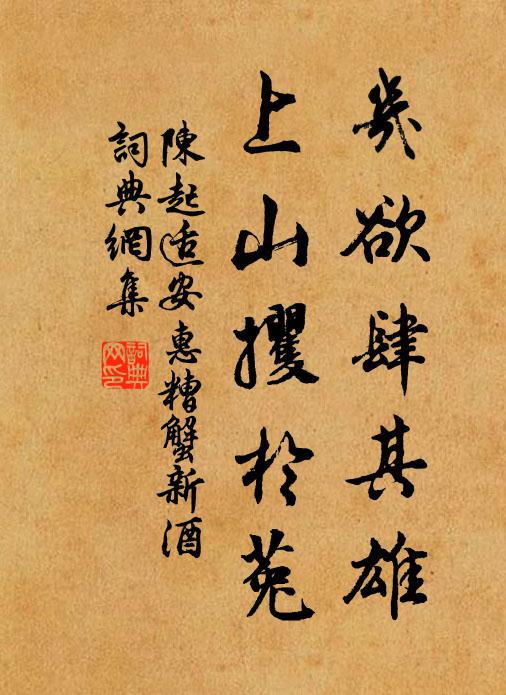 幾欲肆其雄
上山攫於菟
陳起适安惠糟蟹新酒
詞典網集
詞典網印